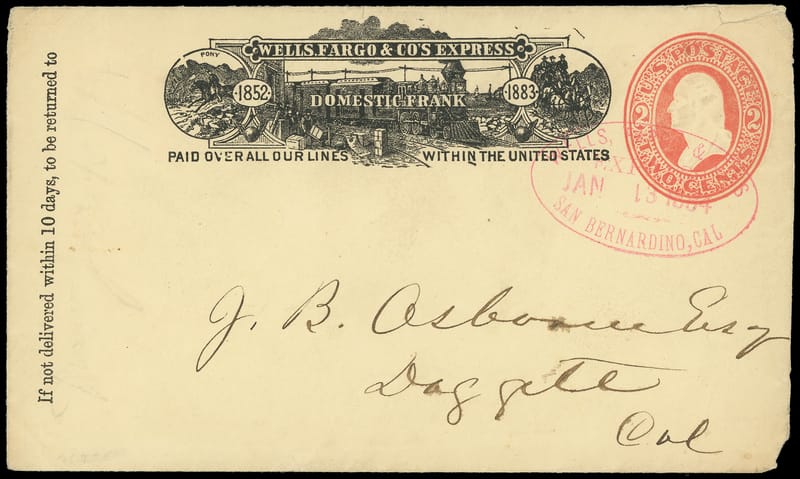 If not delivered within 10 days, to be returned to
PONY
WELLS, FARGO & CO'S EXPRESS
1852
DOMESTIC FRANK
1883
PAID OVER ALL OUR LINES WITHIN THE UNITED STATES
U.S. POSTAGE
2 2
TWO CENTS
WELLS, &
JAN 13 1884
SAN BERNARDINO, CAL
J. B. Osborne Esq
Daggett
Cal